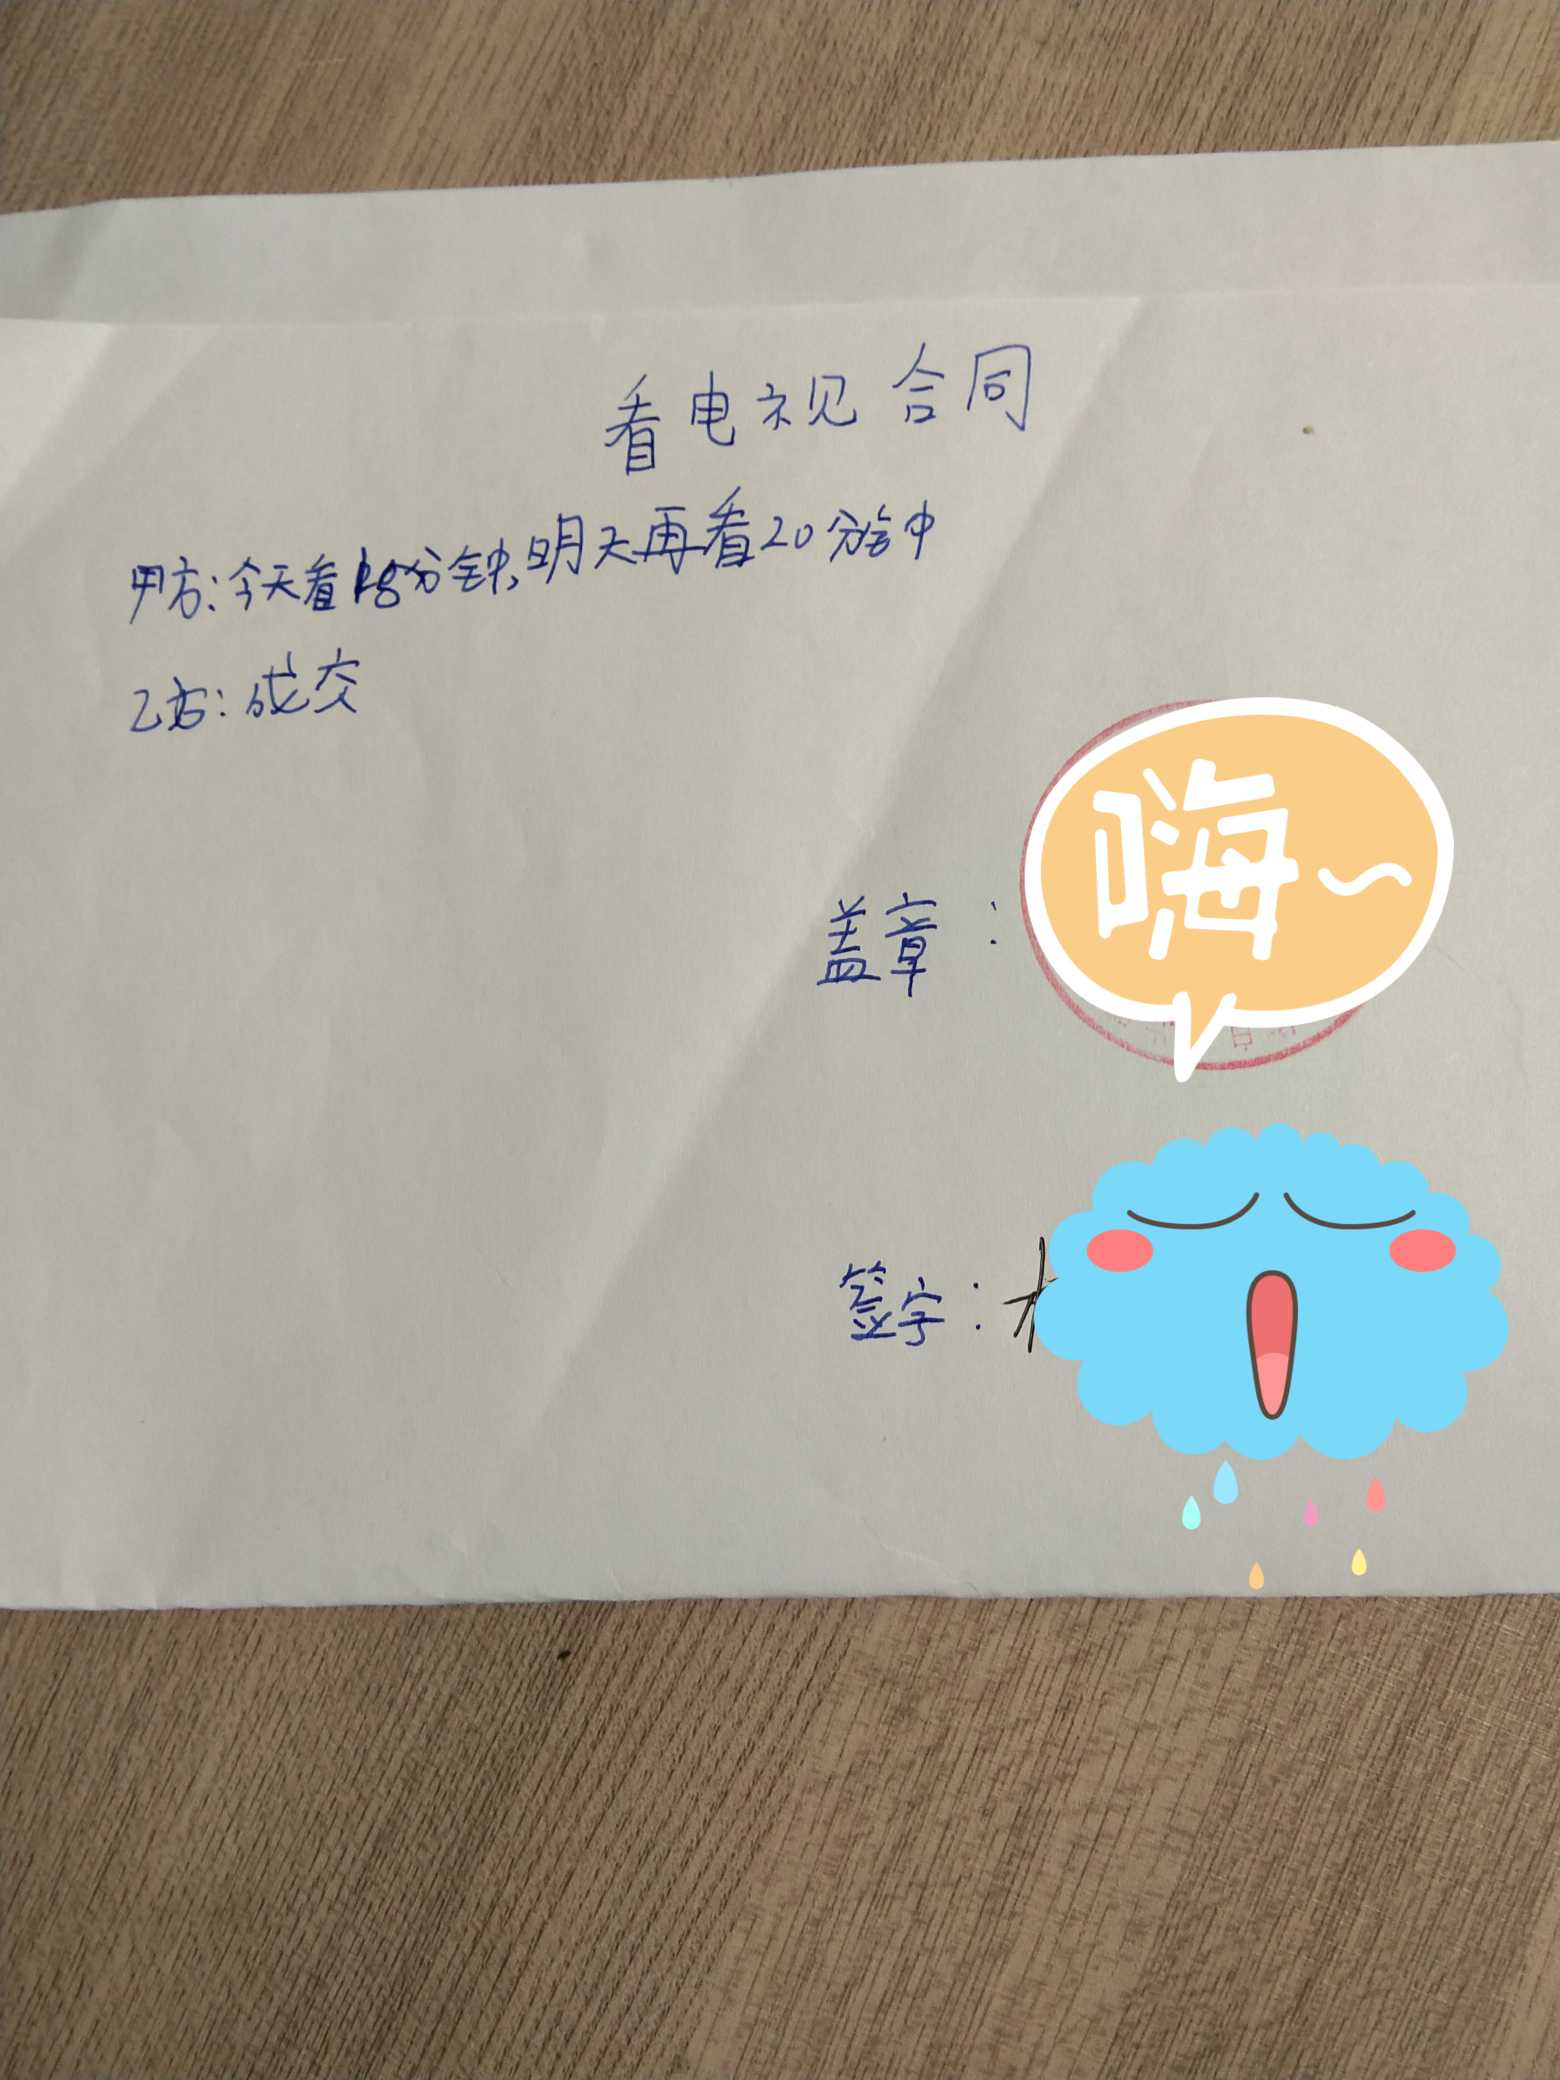 看电视合同
甲方：今天看18分钟，明天再看20分钟
乙方：成交
嗨~
盖章：
签字：